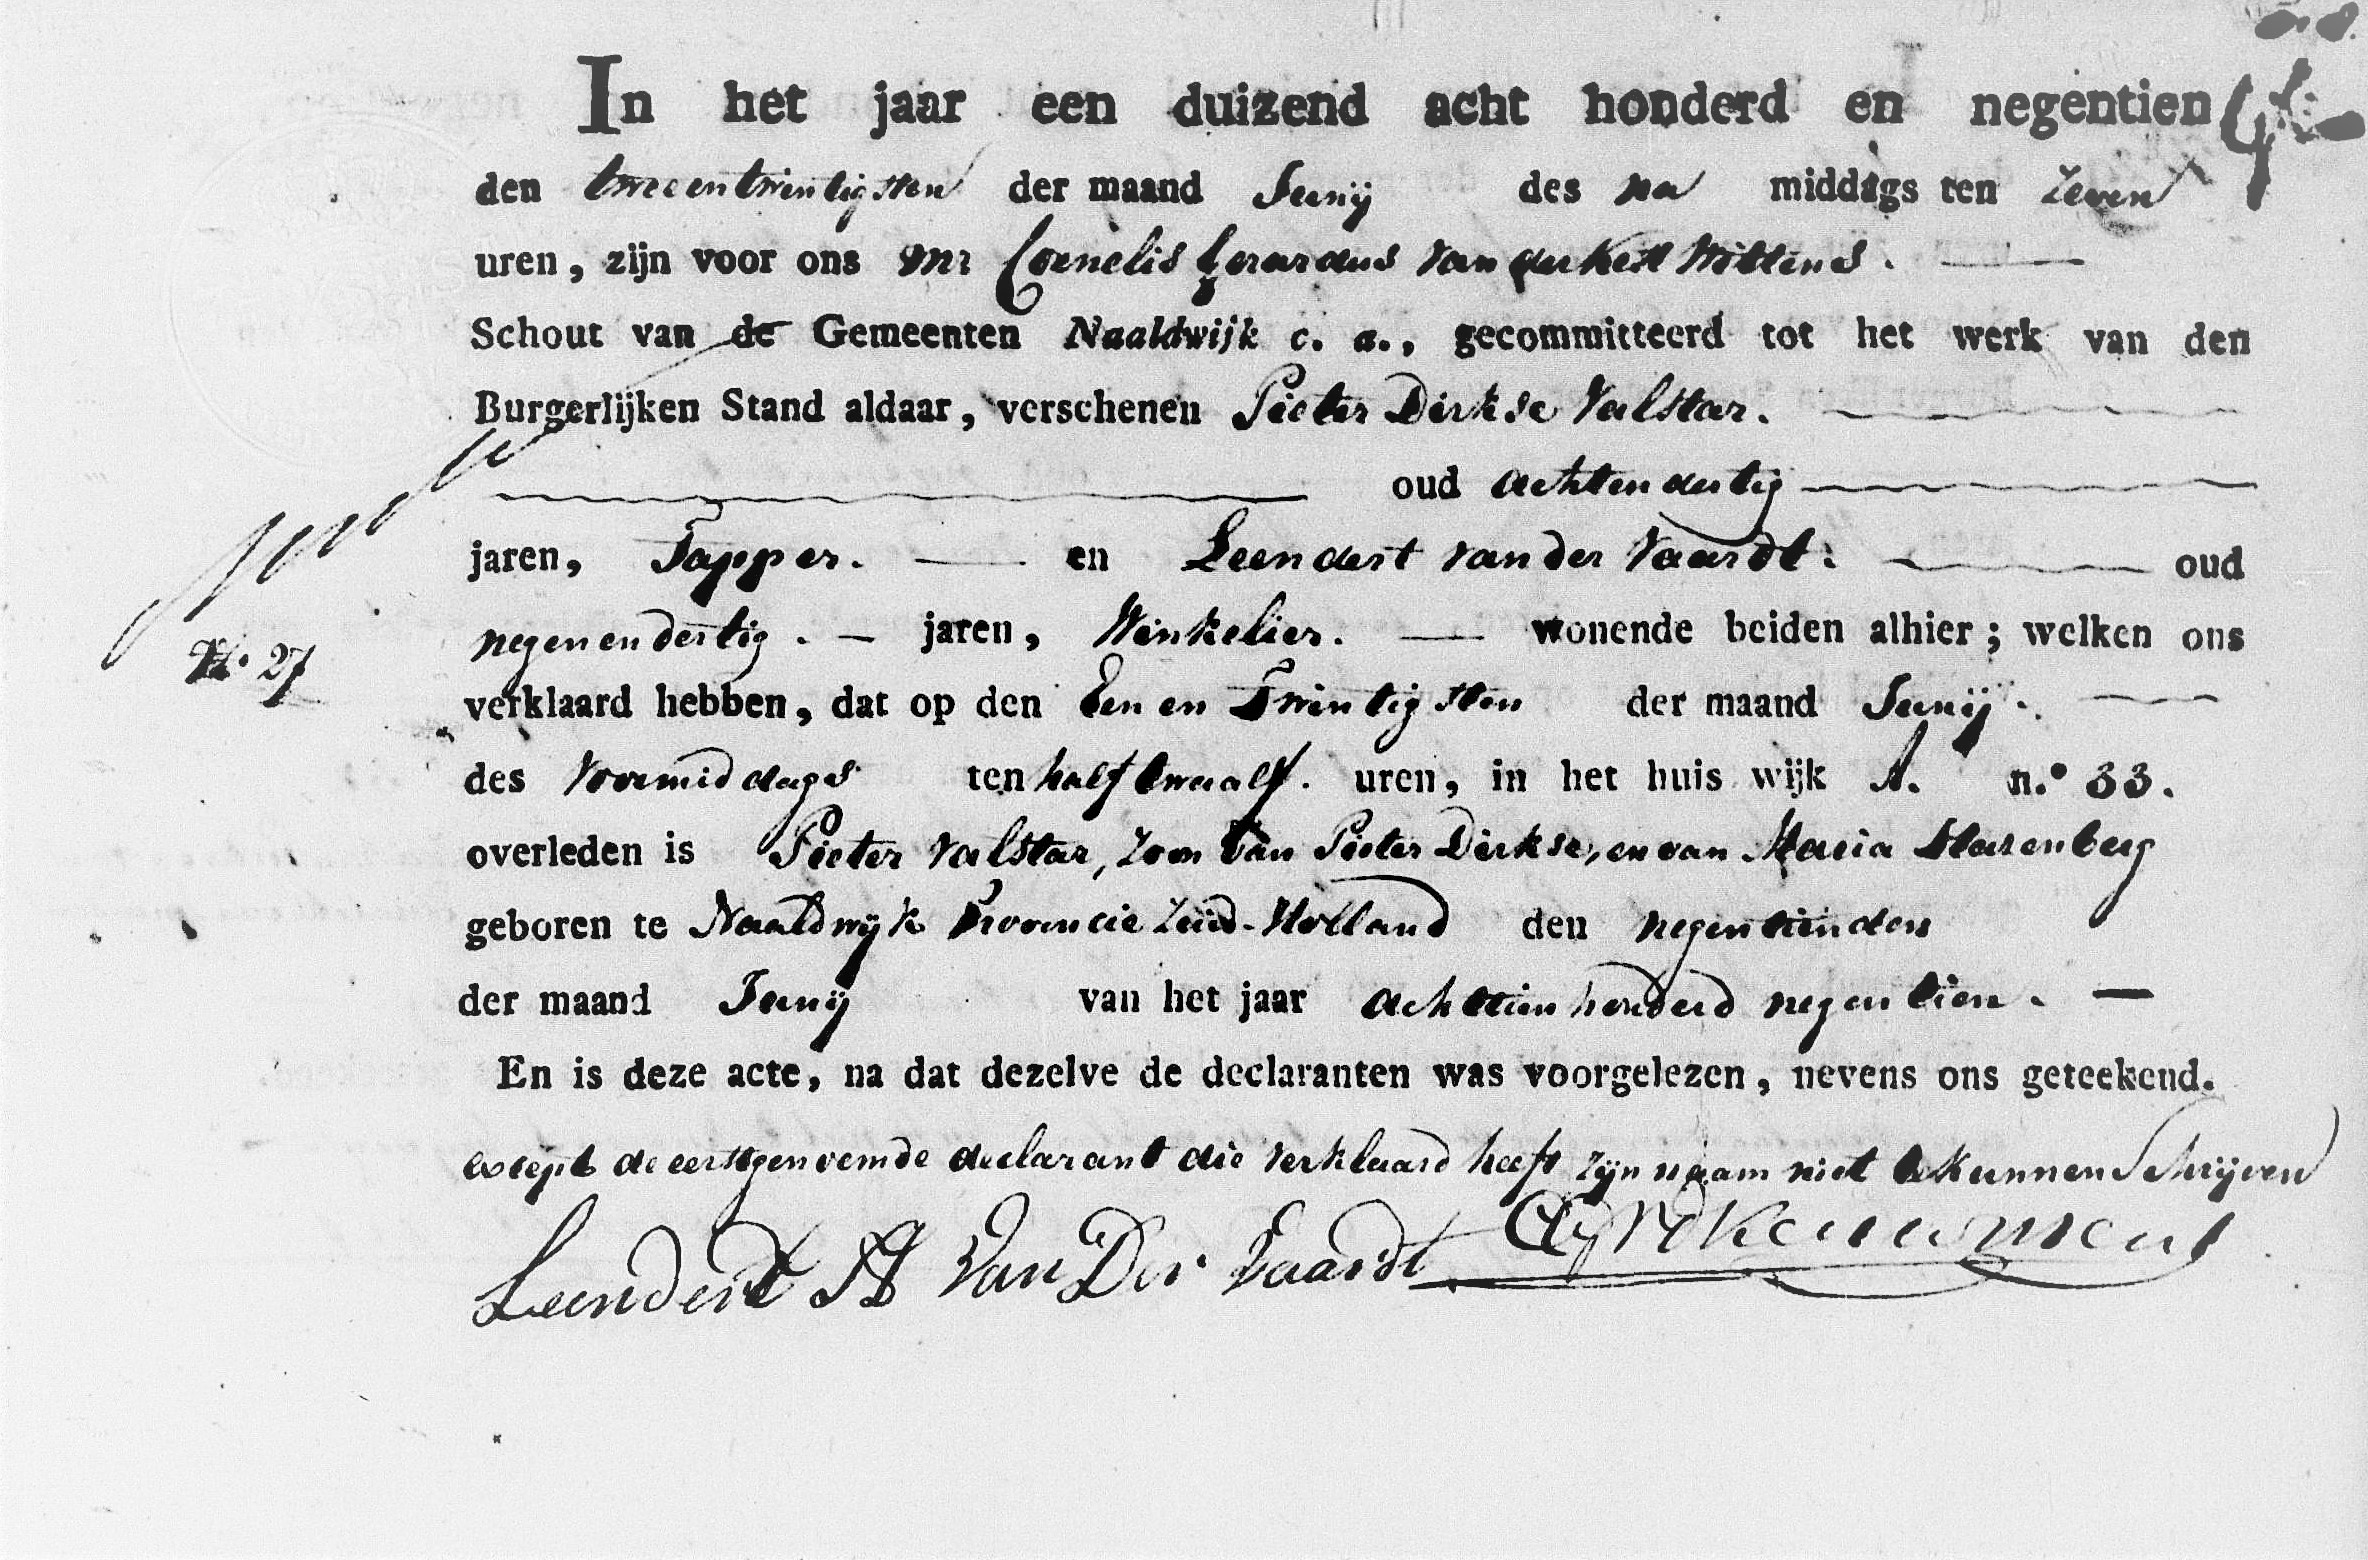 In het jaar een duizend acht honderd en negentien
den tweeentwintigsten der maand Junij des na middags ten zeven
uren, zijn voor ons Mr Cornelis Gerardus van der Willens.
Schout van de Gemeenten Naaldwijk c. a., gecommitteerd tot het werk van den
Burgerlijken Stand aldaar, verschenen Pieter Dirkse Valstar.
oud achtendertig
jaren, Tapper. en Leendert van der Vaardt. oud
negenendertig. jaren, Winkelier. wonende beiden alhier; welken ons
N.º 27
verklaard hebben, dat op den Een en Twintigsten der maand Junij.
des voormiddags ten half twaalf. uren, in het huis wijk A. n.º 33.
overleden is Pieter Valstar, Zoon van Pieter Dirkse, en van Maria Harenberg
geboren te Naaldwijk Provincie Zuid-Holland den negentienden
der maand Junij van het jaar achttienhonderd negentien.
En is deze acte, na dat dezelve de declaranten was voorgelezen, nevens ons geteekend.
except de eerstgenoemde declarant die verklaard heeft zijn naam niet te kunnen Schrijven
Leendert Van Der Vaardt